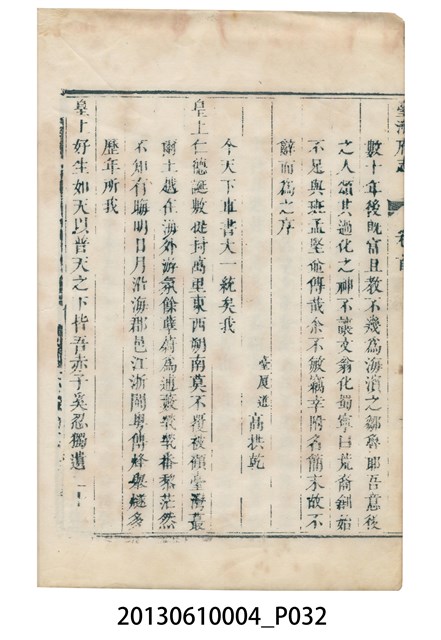 臺灣府志
卷首
數十年後既富且教不幾為海濱之鄒魯耶吾意後
之人頌其過化之神不讓文翁化蜀寧曰荒裔創始
不足與班孟堅並傳哉余不敏竊幸附名簡末故不
辭而為之序
臺廈道高拱乾
今天下車書大一統矣我
皇上仁德誕敷從封萬里東西朔南莫不覆被顧臺灣叢
爾土越在海外游氛餘孽荷為逋藪裳裳番黎茫然
不知有晦明日月沿海郡邑江浙閩粵傳烽舉燧多
歷年所我
皇上好生如天以普天之下皆吾赤子奚忍獨遺
20130610004_P032